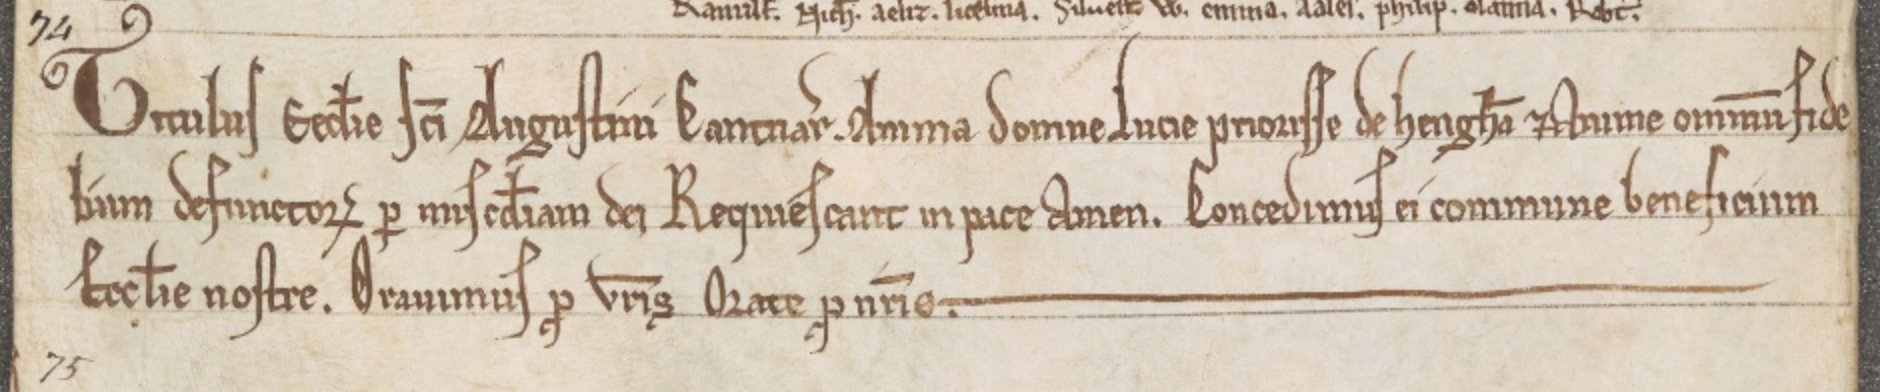 Ramulf. Nich. aeliz. licelina. Siluest. W. emma. aaleis. philip. olaina. Robt.
74
Titulus Eccl̄ie sc̄i Augustini Cantuar̄. Anima domne Lucie priorisse de hengh̄a ⁊ Anime omniū fide
lium defunctoꝝ ꝑ misc̄diam dei Requiescant in pace Amen. Concedimus ei commune beneficium
Eccl̄ie nostre. Orauimus ꝓ vr̄is Orate ꝓ nr̄is.
75